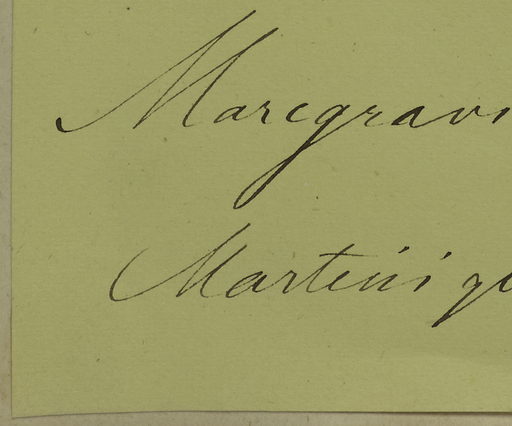 Marcgravi
Martiniqu